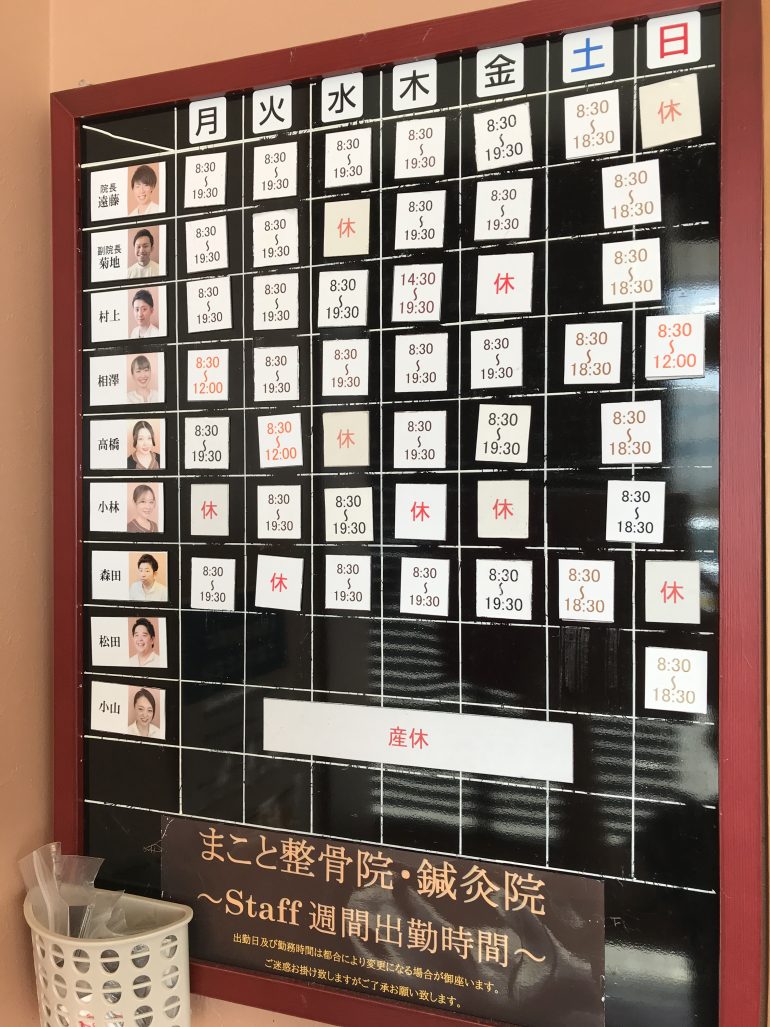 月 火 水 木 金 土 日
院長 遠藤 8:30〜19:30 8:30〜19:30 8:30〜19:30 8:30〜19:30 8:30〜19:30 8:30〜18:30 休
副院長 菊地 8:30〜19:30 8:30〜19:30 休 8:30〜19:30 8:30〜19:30 8:30〜18:30
村上 8:30〜19:30 8:30〜19:30 8:30〜19:30 14:30〜19:30 休 8:30〜18:30
相澤 8:30〜12:00 8:30〜19:30 8:30〜19:30 8:30〜19:30 8:30〜19:30 8:30〜18:30 8:30〜12:00
高橋 8:30〜19:30 8:30〜12:00 休 8:30〜19:30 8:30〜19:30 8:30〜18:30
小林 休 8:30〜19:30 8:30〜19:30 休 休 8:30〜18:30
森田 8:30〜19:30 休 8:30〜19:30 8:30〜19:30 8:30〜19:30 8:30〜18:30 休
松田 8:30〜18:30
小山 産休
まこと整骨院・鍼灸院
〜Staff 週間出勤時間〜
出勤日及び勤務時間は都合により変更になる場合が御座います。
ご迷惑お掛け致しますがご了承お願い致します。